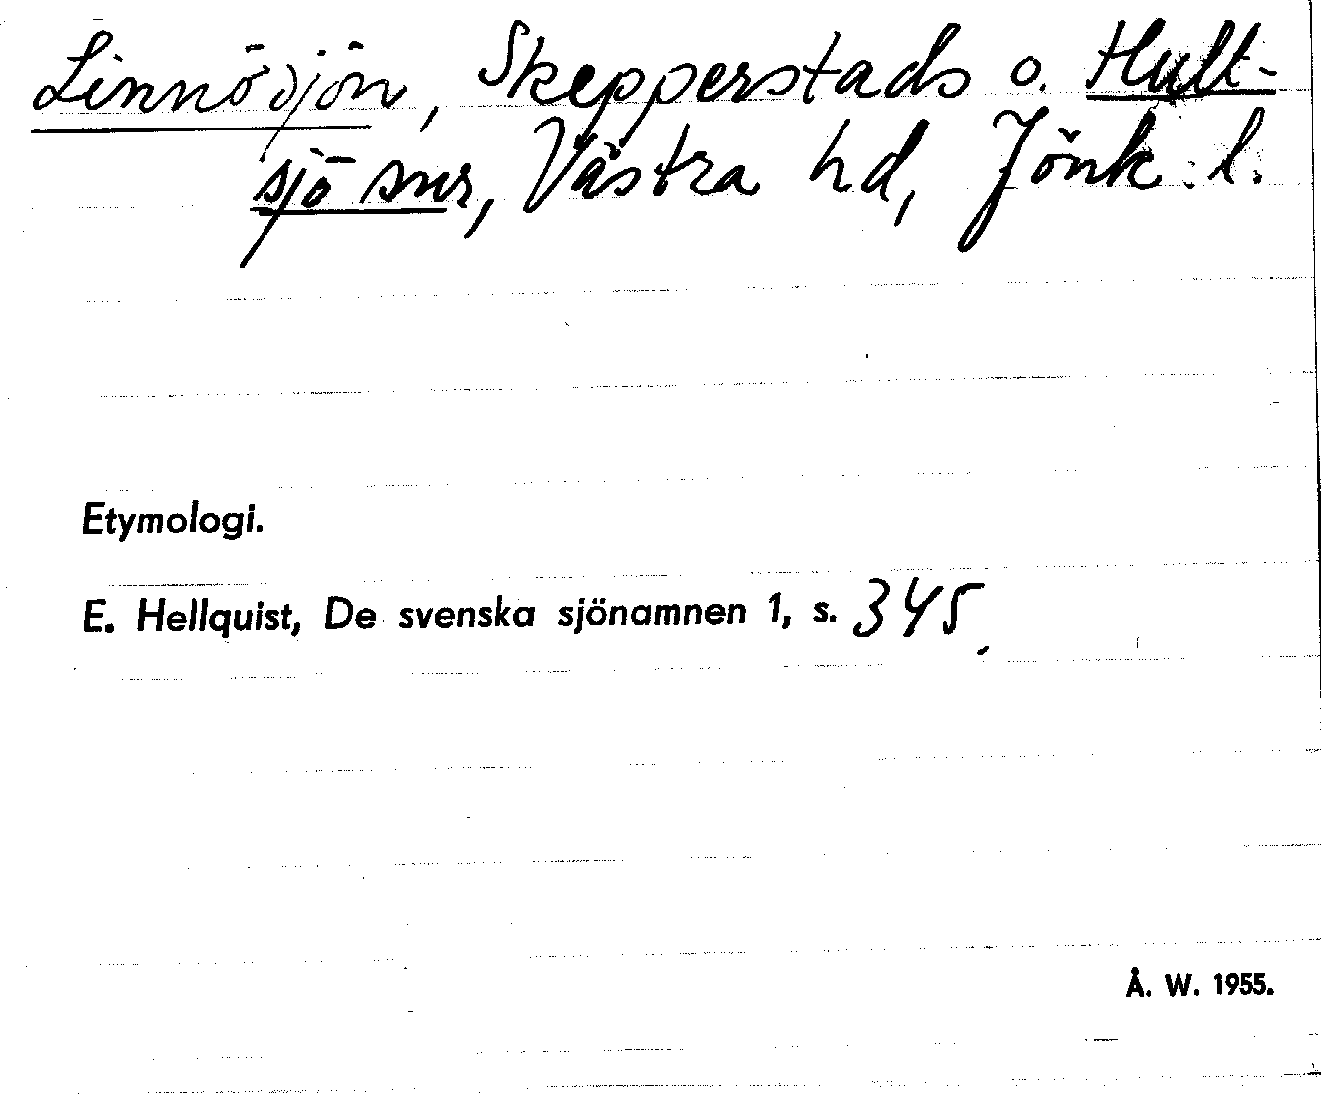 Linnösjön, Skepperstads o. Hult-
sjö snr, Västra hd, Jönk. l.
Etymologi.
E. Hellquist, De svenska sjönamnen 1, s. 345.
Å. W. 1955.